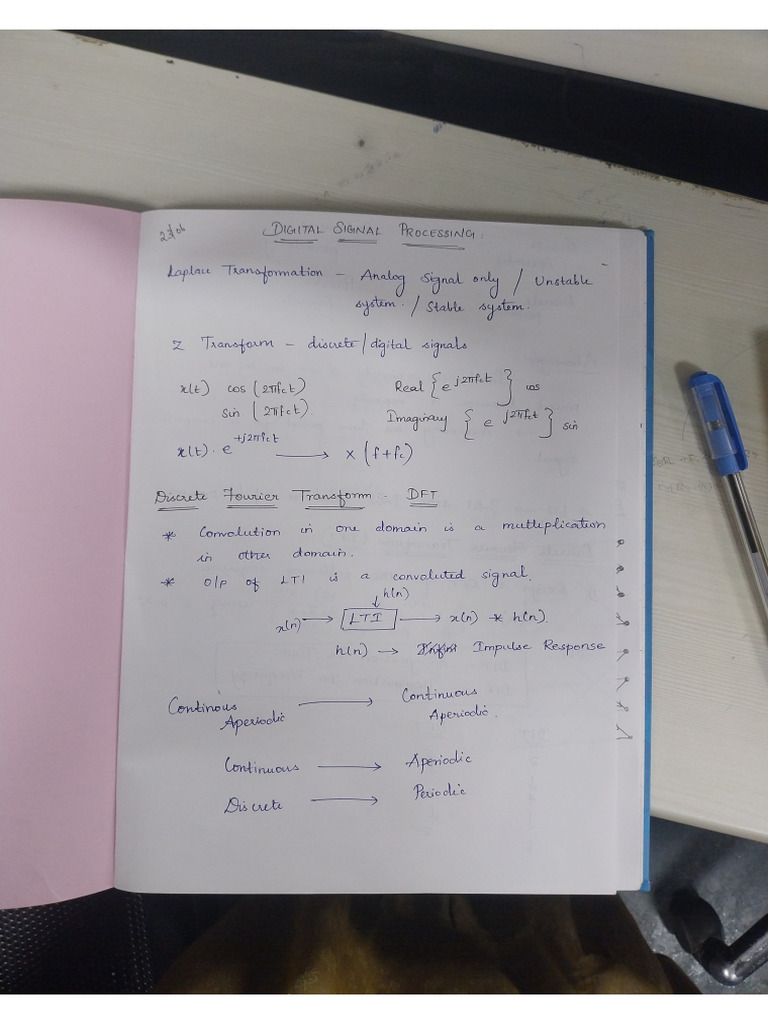 23/06
DIGITAL SIGNAL PROCESSING.
Laplace Transformation - Analog Signal only / Unstable
system. / Stable system.
Z Transform - discrete/digital signals
x(t) cos(2πfct)
sin(2πfct)
Real {e^j2πfct} cos
Imaginary {e^j2πfct} sin
x(t). e^+j2πfct → X(f+fc)
Discrete Fourier Transform - DFT
* Convolution in one domain is a multiplication
in other domain.
* O/p of LTI is a convoluted signal.
h(n)
x(n) → LTI → x(n) * h(n).
h(n) → Impulse Response
Continous → Continuous
Aperiodic Aperiodic.
Continuous → Aperiodic
Discrete → Periodic